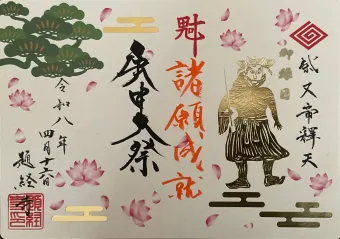 柴又帝釋天
御縁日
諸願成就
庚申大祭
令和八年
四月十六日
題経寺